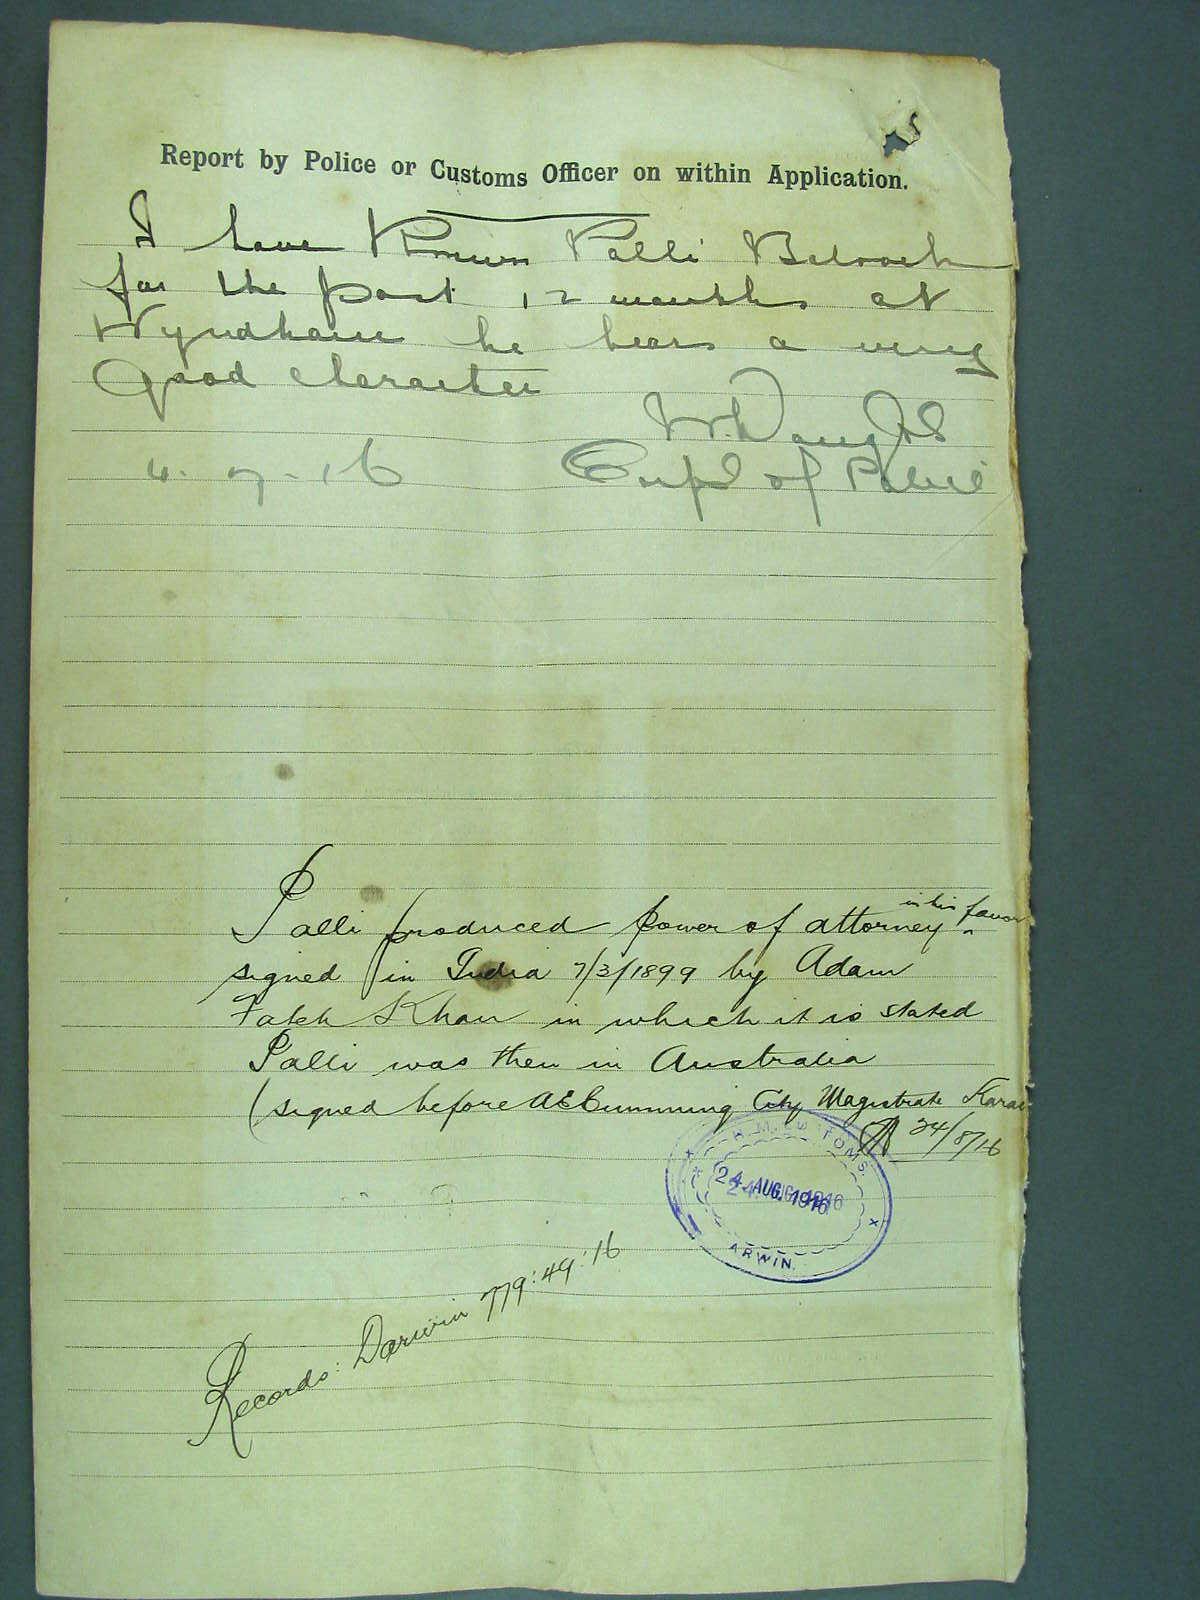 Report by Police or Customs Officer on within Application.
I have Known Palli Belooch
for the past 12 months at
Wyndham he bears a very
good character
Corpl of Police
4.7.16
in his favor
Palli produced power of attorney
signed in India 7/3/1899 by Adam
Fateh Khan in which it is stated
Palli was then in Australia
(signed before AE Cumming City Magistrate Karac
24/8/16
H.M. CUSTOMS.
24 AUG. 1916
ARWIN.
Records: Darwin 779:49:16